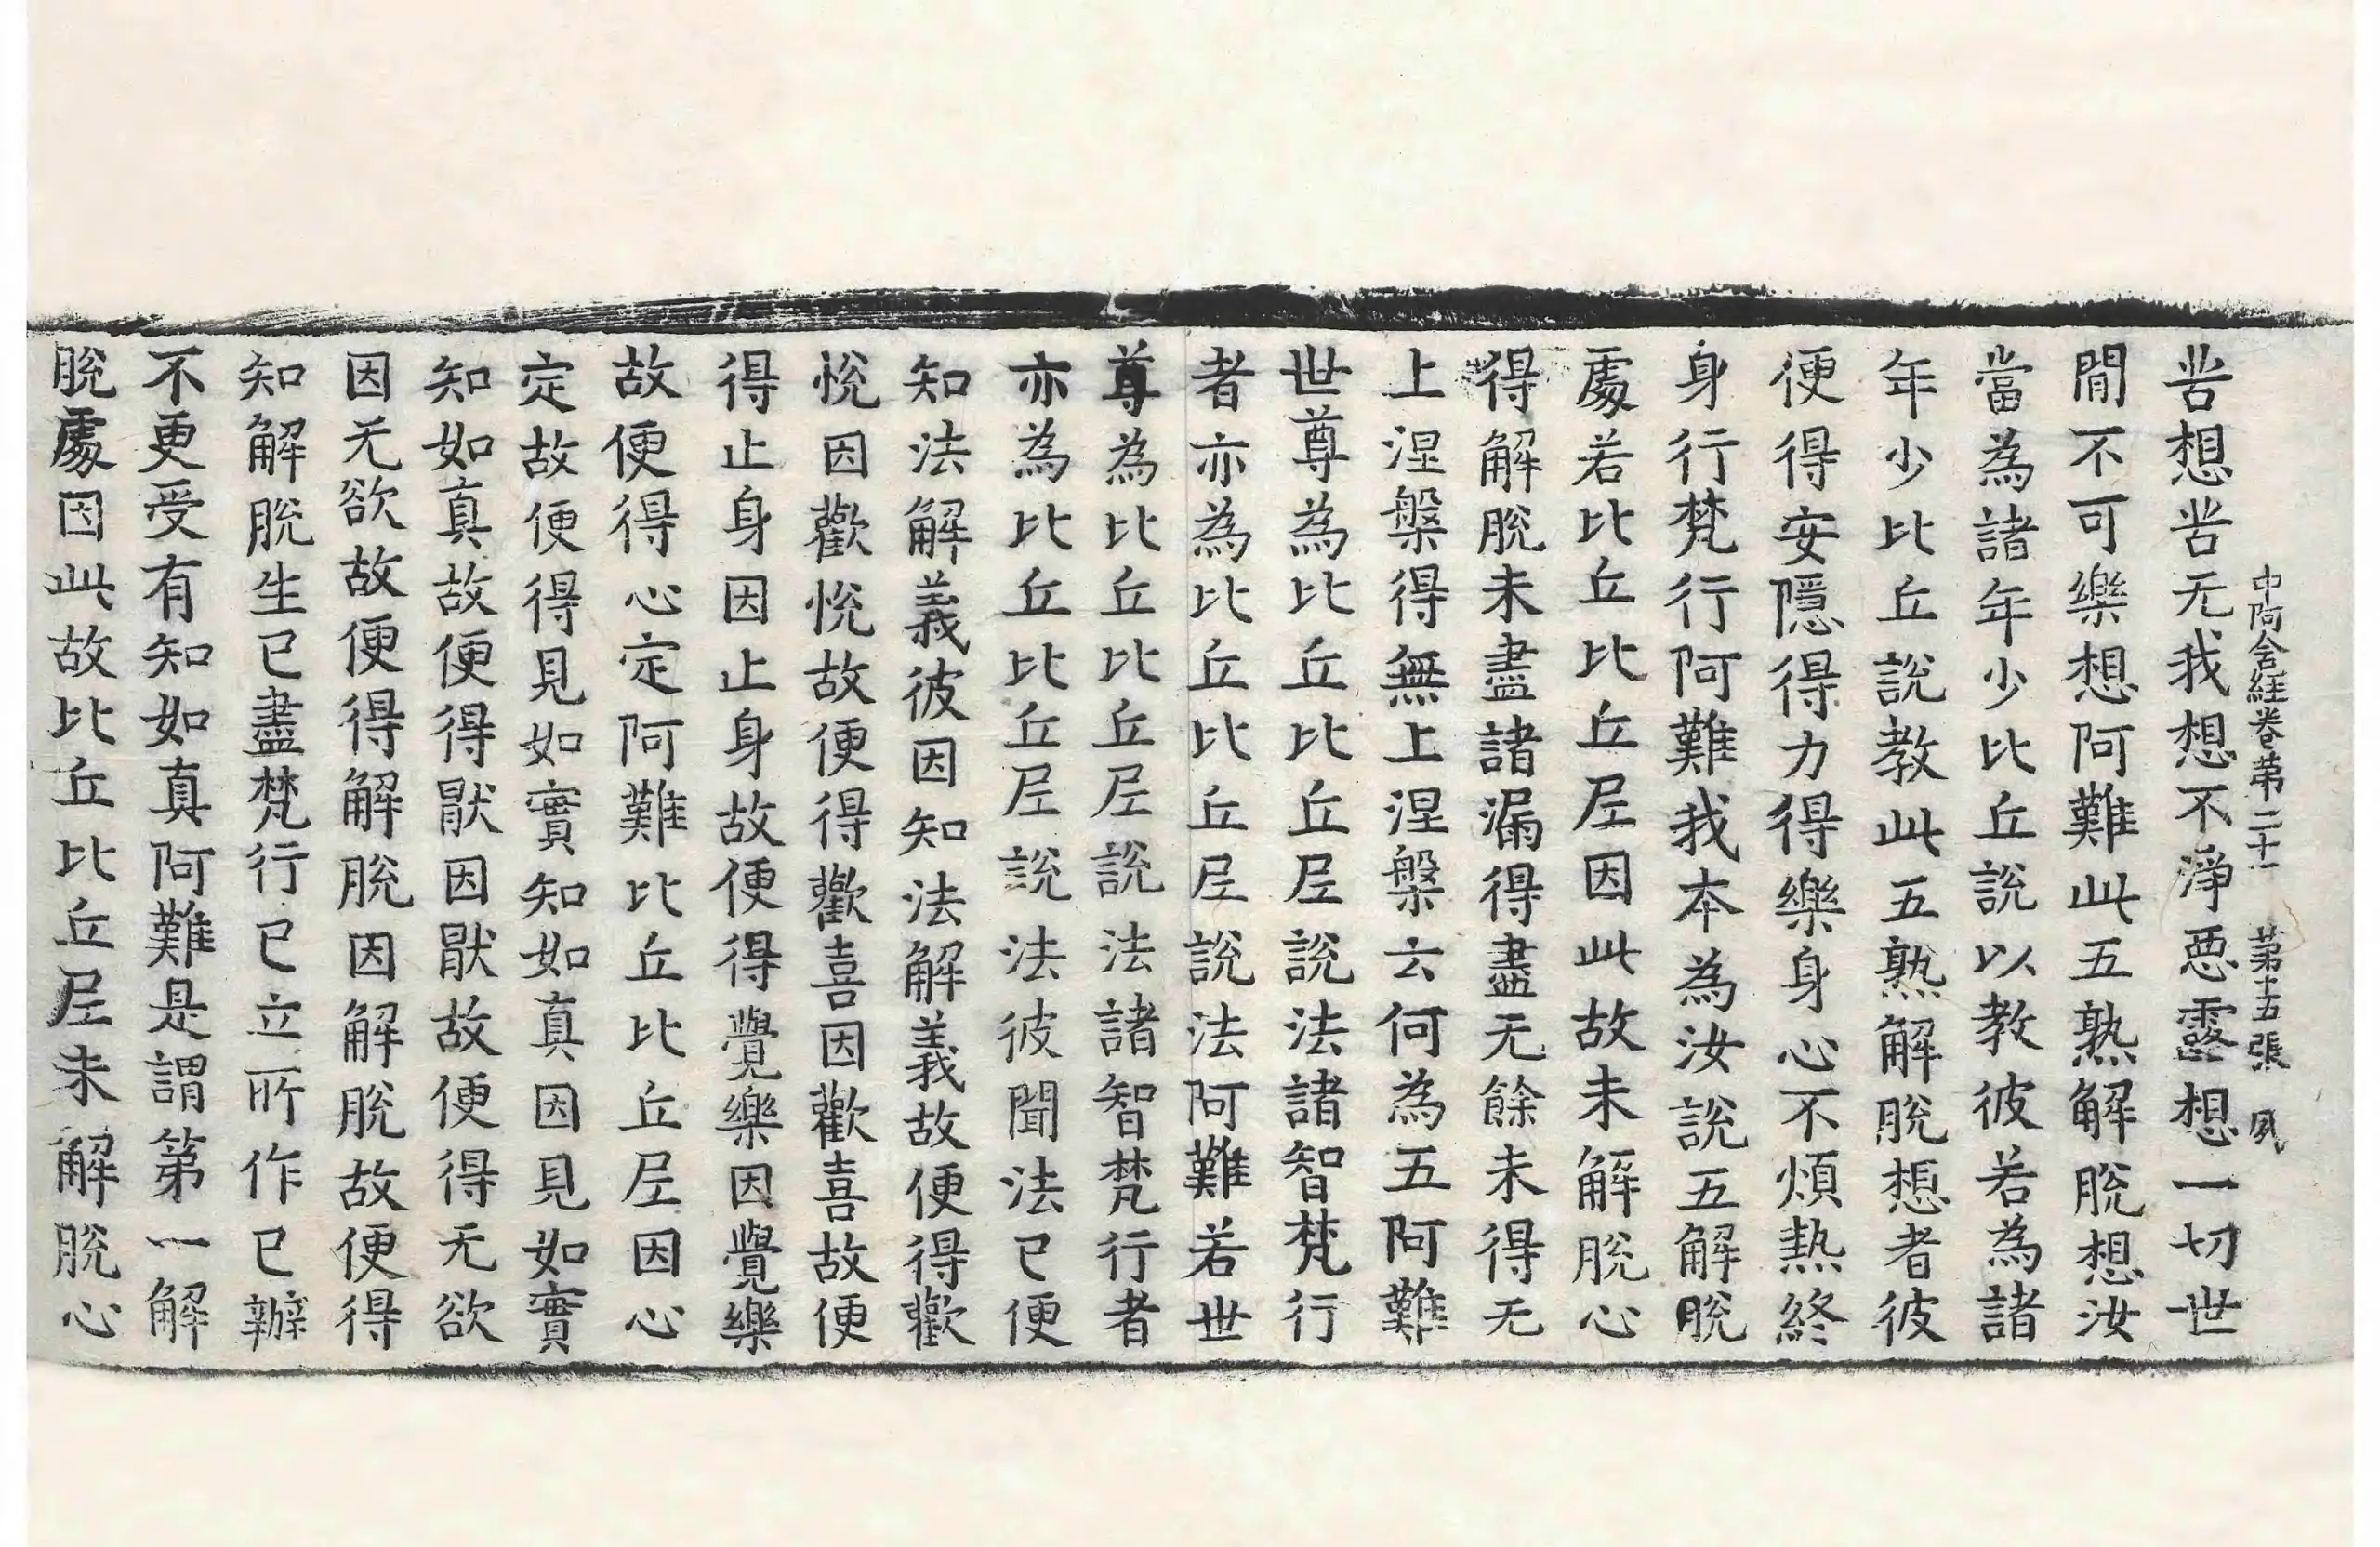 中阿含経卷第二十一 第十五張 夙
苦想苦无我想不淨惡露想一切世
閒不可樂想阿難此五熟解脫想汝
當為諸年少比丘說以教彼若為諸
年少比丘說教此五熟解脫想者彼
便得安隱得力得樂身心不煩熱終
身行梵行阿難我本為汝說五解脫
處若比丘比丘尼因此故未解脫心
得解脫未盡諸漏得盡无餘未得无
上涅槃得無上涅槃云何為五阿難
世尊為比丘比丘尼說法諸智梵行
者亦為比丘比丘尼說法阿難若世
尊為比丘比丘尼說法諸智梵行者
亦為比丘比丘尼說法彼聞法已便
知法解義彼因知法解義故便得歡
悅因歡悅故便得歡喜因歡喜故便
得止身因止身故便得覺樂因覺樂
故便得心定阿難比丘比丘尼因心
定故便得見如實知如真因見如實
知如真故便得猒因猒故便得无欲
因无欲故便得解脫因解脫故便得
知解脫生已盡梵行已立所作已辦
不更受有知如真阿難是謂第一解
脫處因此故比丘比丘尼未解脫心